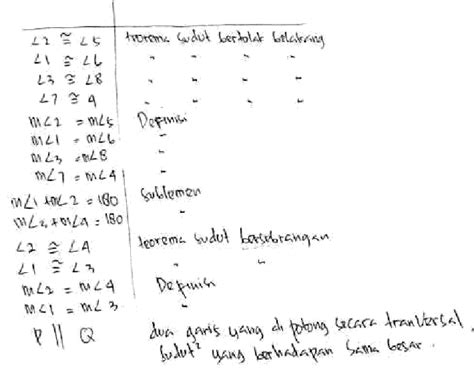 ∠2 ≅ ∠5 teorema sudut bertolak belakang
∠1 ≅ ∠6 " " " "
∠3 ≅ ∠8 " " " "
∠7 ≅ 4 " " " "
m∠2 = m∠5 Definisi
m∠1 = m∠6 "
m∠3 = m∠8 "
m∠7 = m∠4 "
m∠1 + m∠2 = 180 Sublemen
m∠3 + m∠4 = 180 "
∠2 ≅ ∠4 teorema sudut bersebrangan
∠1 ≅ ∠3 " "
m∠2 = m∠4 Definisi
m∠1 = m∠3 "
P || Q dua garis yang di potong secara tranversal,
sudut² yang berhadapan sama besar.